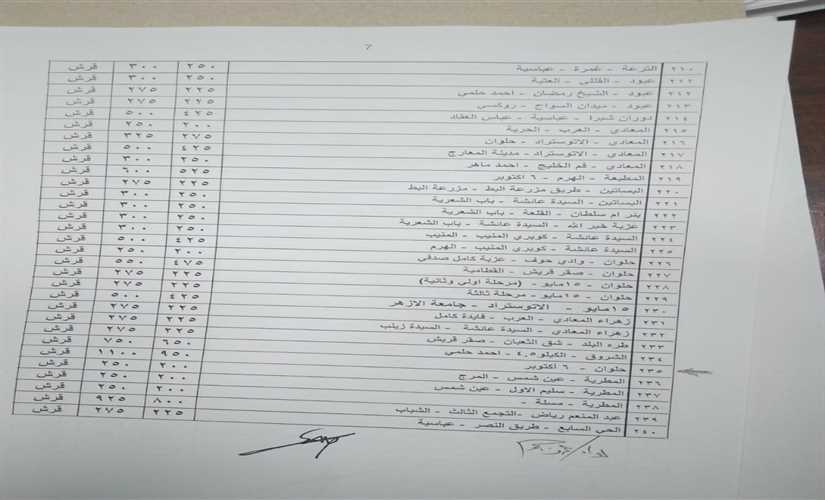 ٧
٢١٠ الترعة - غمرة - عباسية ٢٥٠ ٣٠٠ قرش
عبود - القللي - العتبة ٢٥٠ ٣٠٠ قرش
٢١٢ عبود - الشيخ رمضان - احمد حلمي ٢٢٥ ٢٧٥ قرش
٢١٣ عبود - ميدان السواح - روكسي ٢٢٥ ٢٧٥ قرش
٢١٤ دوران شبرا - عباسية - عباس العقاد ٤٢٥ ٥٠٠ قرش
٢١٥ المعادي - العرب - الحرية ٢٠٠ ٢٥٠ قرش
٢١٦ المعادي - الاتوستراد - حلوان ٢٧٥ ٣٢٥ قرش
٢١٧ المعادي - الاتوستراد - مدينة المعارج ٤٢٥ ٥٠٠ قرش
٢١٨ المعادي - فم الخليج - احمد ماهر ٢٥٠ ٣٠٠ قرش
٢١٩ المطبعة - الهرم - ٦ اكتوبر ٥٢٥ ٦٠٠ قرش
٢٢٠ البساتين - طريق مزرعة البط - مزرعة البط ٢٢٥ ٢٧٥ قرش
٢٢١ البساتين - السيدة عائشة - باب الشعرية ٢٥٠ ٣٠٠ قرش
٢٢٢ بئر ام سلطان - القلعة - باب الشعرية ٢٥٠ ٣٠٠ قرش
٢٢٣ عزبة خير الله - السيدة عائشة - باب الشعرية ٢٥٠ ٣٠٠ قرش
٢٢٤ السيدة عائشة - كوبري المنيب - المنيب ٢٥٠ ٣٠٠ قرش
٢٢٥ السيدة عائشة - كوبري المنيب - الهرم ٤٢٥ ٥٠٠ قرش
٢٢٦ حلوان - وادي حوف - عزبة كامل صدقي ٢٠٠ ٢٥٠ قرش
٢٢٧ حلوان - صقر قريش - القطامية ٤٧٥ ٥٥٠ قرش
٢٢٨ حلوان - ١٥مايو - (مرحلة اولي وثانية) ٢٢٥ ٢٧٥ قرش
٢٢٩ حلوان - ١٥مايو - مرحلة ثالثة ٢٢٥ ٢٧٥ قرش
٢٣٠ ١٥مايو - الاتوستراد - جامعة الازهر ٤٢٥ ٥٠٠ قرش
٢٣١ زهراء المعادي - العرب - فايدة كامل ٢٢٥ ٢٧٥ قرش
٢٣٢ زهراء المعادي - السيدة عائشة - السيدة زينب ٢٢٥ ٢٧٥ قرش
٢٣٣ طره البلد - شق الثعبان - صقر قريش ٢٢٥ ٢٧٥ قرش
٢٣٤ الشروق - الكيلو٤.٥ - احمد حلمي ٦٥٠ ٧٥٠ قرش
٢٣٥ حلوان - ٦ اكتوبر ٩٥٠ ١١٠٠ قرش
٢٣٦ المطرية - عين شمس - المرج ٢٠٠ ٢٥٠ قرش
٢٣٧ المطرية - سليم الاول - عين شمس ٢٠٠ ٢٥٠ قرش
٢٣٨ المطرية - مسلة ٢٠٠ ٢٥٠ قرش
٢٣٩ عبد المنعم رياض -التجمع الثالث - الشباب ٨٠٠ ٩٢٥ قرش
٢٤٠ الحي السابع - طريق النصر - عباسية ٢٢٥ ٢٧٥ قرش